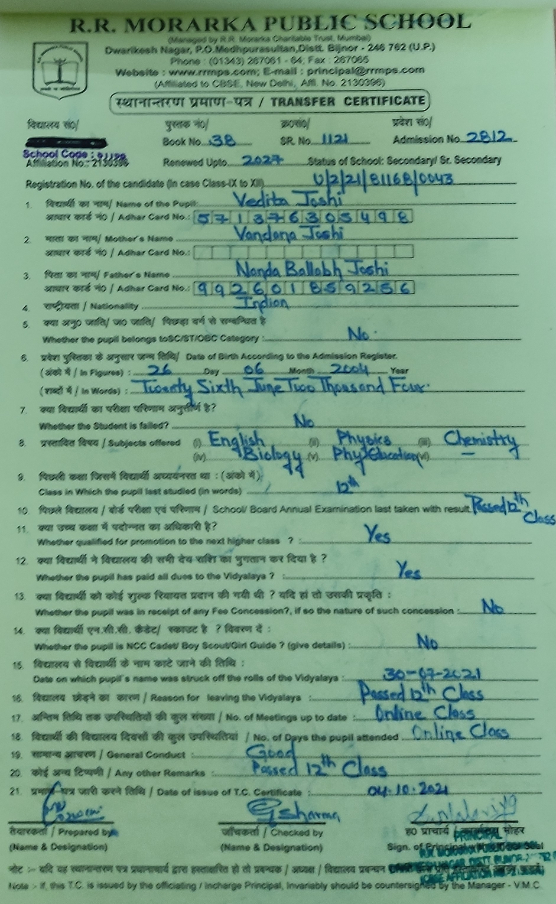 R.R. MORARKA PUBLIC SCHOOL
(Managed by R.R. Morarka Charitable Trust, Mumbai)
Dwarikesh Nagar, P.O. Medhpurasultan, Distt. Bijnor - 246 762 (U.P.)
Phone : (01343) 267061 - 64; Fax : 267065
Website : www.rrmps.com; E-mail : principal@rrmps.com
(Affiliated to CBSE, New Delhi, Affi. No. 2130396)
स्थानान्तरण प्रमाण-पत्र / TRANSFER CERTIFICATE
विद्यालय सं०/ पुस्तक नं०/ क्र०सं०/ प्रवेश सं०/
Book No. 38 SR. No. 1121 Admission No. 2812
School Code :
Affiliation No.: 2130396 Renewed Upto. 2027 Status of School: Secondary/ Sr. Secondary
Registration No. of the candidate (in case Class-IX to XII) U/2/21/81168/0043
1. विद्यार्थी का नाम/ Name of the Pupil: Vedita Joshi
आधार कार्ड नं०/ Adhar Card No.: 571376305498
2. माता का नाम/ Mother's Name Vandana Joshi
आधार कार्ड नं०/ Adhar Card No.:
3. पिता का नाम/ Father's Name Nanda Ballabh Joshi
आधार कार्ड नं०/ Adhar Card No.: 992601859256
4. राष्ट्रीयता / Nationality Indian
5. क्या अनु० जाति/ ज० जाति/ पिछड़ा वर्ग से सम्बन्धित है
Whether the pupil belongs toSC/ST/OBC Category : No.
6. प्रवेश पुस्तिका के अनुसार जन्म तिथि/ Date of Birth According to the Admission Register.
(अंको में / In Figures) : 26 Day 06 Month 2004 Year
(शब्दों में / In Words) : Twenty Sixth June Two Thousand Four.
7. क्या विद्यार्थी का परीक्षा परिणाम अनुत्तीर्ण है?
Whether the Student is failed? No
8. प्रस्तावित विषय / Subjects offered (i) English (ii) Physics (iii) Chemistry
(iv) Biology (v) Phy. Education (vi) —
9. पिछली कक्षा जिसमें विद्यार्थी अध्ययनरत था : (अंको में)
Class in Which the pupil last studied (in words) 12th
10. पिछले विद्यालय / बोर्ड परीक्षा एवं परिणाम / School/ Board Annual Examination last taken with result. Passed 12th Class
11. क्या उच्च कक्षा में पदोन्नत का अधिकारी है?
Whether qualified for promotion to the next higher class ? : Yes
12. क्या विद्यार्थी ने विद्यालय की सभी देय राशि का भुगतान कर दिया है ?
Whether the pupil has paid all dues to the Vidyalaya ? : Yes
13. क्या विद्यार्थी को कोई शुल्क रियायत प्रदान की गयी थी ? यदि हां तो उसकी प्रकृति :
Whether the pupil was in receipt of any Fee Concession?, if so the nature of such concession : No
14. क्या विद्यार्थी एन.सी.सी. कैडेट/ स्काउट है ? विवरण दे :
Whether the pupil is NCC Cadet/ Boy Scout/Girl Guide ? (give details) : No
15. विद्यालय से विद्यार्थी के नाम काटे जाने की तिथि :
Date on which pupil's name was struck off the rolls of the Vidyalaya : 30-07-2021
16. विद्यालय छोड़ने का कारण / Reason for leaving the Vidyalaya : Passed 12th Class
17. अन्तिम तिथि तक उपस्थितियों की कुल संख्या / No. of Meetings up to date : Online Class
18. विद्यार्थी की विद्यालय दिवसों की कुल उपस्थितियां / No. of Days the pupil attended Online Class
19. सामान्य आचरण / General Conduct : Good
20. कोई अन्य टिप्पणी / Any other Remarks : Passed 12th Class
21. प्रमाण-पत्र जारी करने तिथि / Date of issue of T.C. Certificate : 04.10.2021
तैयारकर्ता / Prepared by जाँचकर्ता / Checked by ह० प्राचार्य मोहर
(Name & Designation) (Name & Designation) Sign. of Principal
PRINCIPAL
R.R. MORARKA PUBLIC SCHOOL
नोट :- यदि यह स्थानान्तरण पत्र प्रधानाचार्य द्वारा हस्ताक्षरित हो तो प्रबन्धक / अध्यक्ष / विद्यालय प्रबन्धन
Note :- If, this T.C. is issued by the officiating / Incharge Principal, Invariably should be countersigned by the Manager - V.M.C.